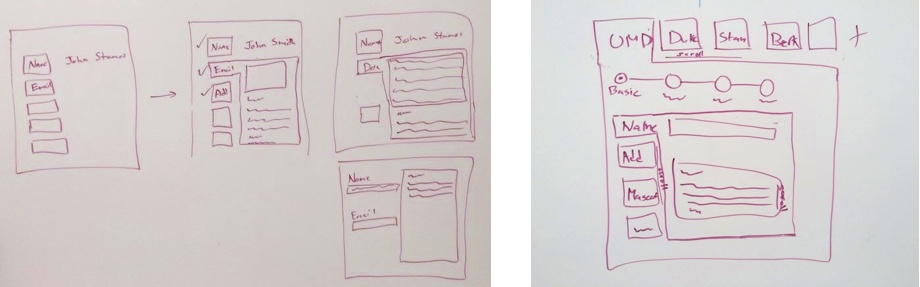 Name John Stamos
Email
Name John Smith
Email
Add
Name John Stamos
Date
Name
Email
UMD Duke Stan Berk +
scroll
Basic
Name
Add
Mascot